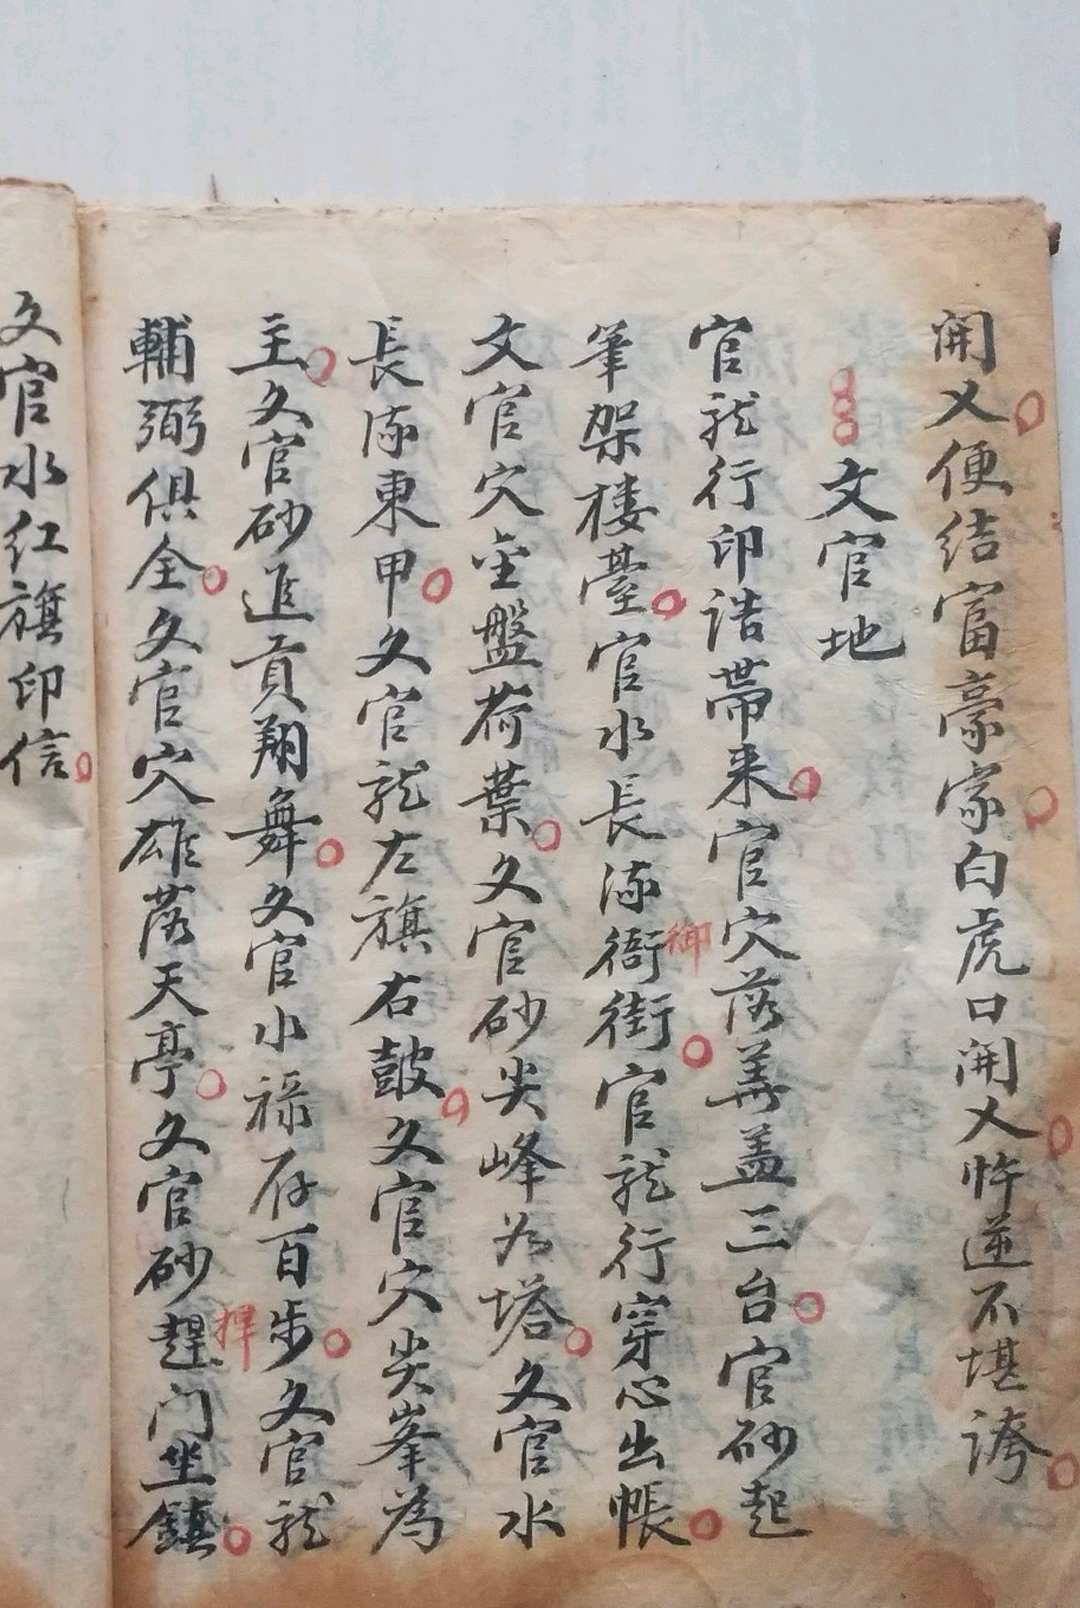 開乂便结富豪家白虎口開乂忤逆不堪誇
文官地
官龙行印诰帯来官穴落華盖三台官砂起
筆架楼臺官水長流衙街御官龙行穿心出帳
文官穴金盤荷葉文官砂尖峰为塔文官水
長流東甲文官龙左旗右鼓文官穴尖峯為
主文官砂進貢翔舞文官水禄存百步文官龙
輔弼俱全文官穴雄落天亭文官砂趕捍门坐鎮
文官水红旗印信